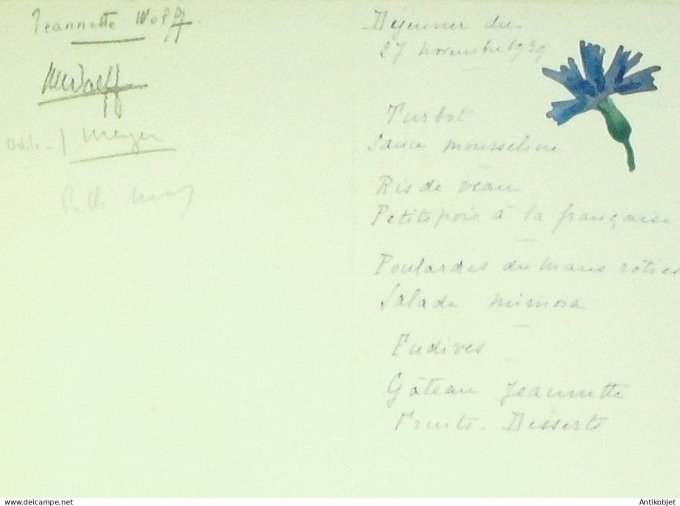 Jeannette Wolff
MWolff
J Meyer
Déjeuner du
27 novembre 1939
Turbot
Sauce mousseline
Ris de veau
Petits pois à la française
Poulardes du mans roties
Salade mimosa
Endives
Gâteau Jeannette
Fruits - Desserts
www.delcampe.net
Antikobjet